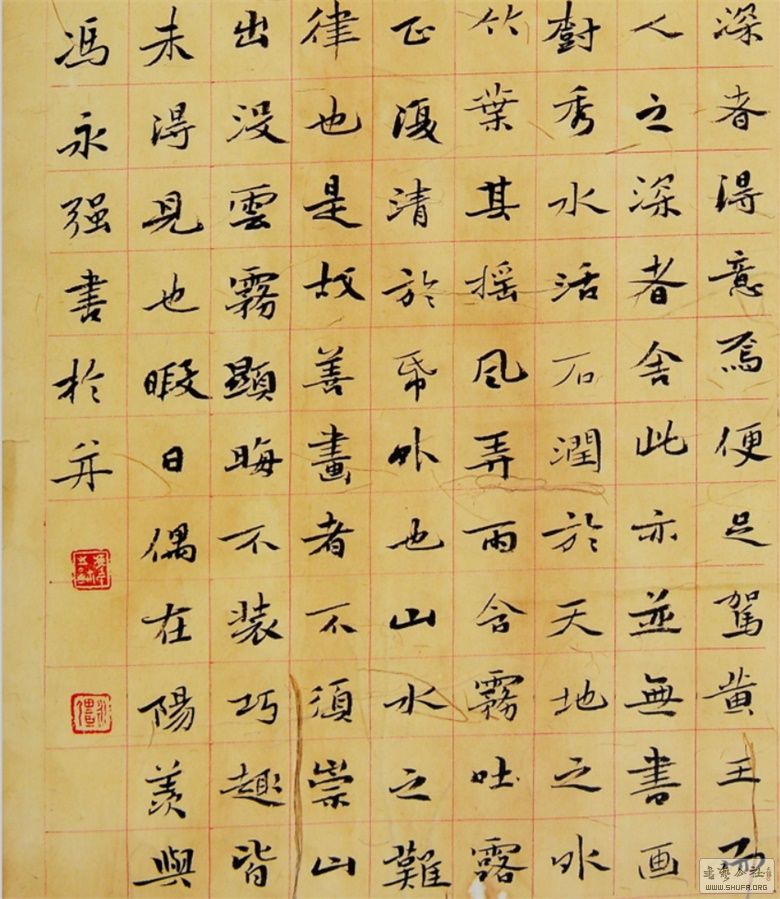 深者得意焉便足駕黄王而
人之深者舍此亦並無書画
樹秀水活石潤於天地之外
竹葉其摇風弄雨含霧吐露
正復清於帋外也山水之難
律也是故善畫者不須崇山
出没雲霧顯晦不装巧趣皆
未得見也暇日偶在陽羡與
馮永强書於并
書藝公社
WWW.SHUFA.ORG